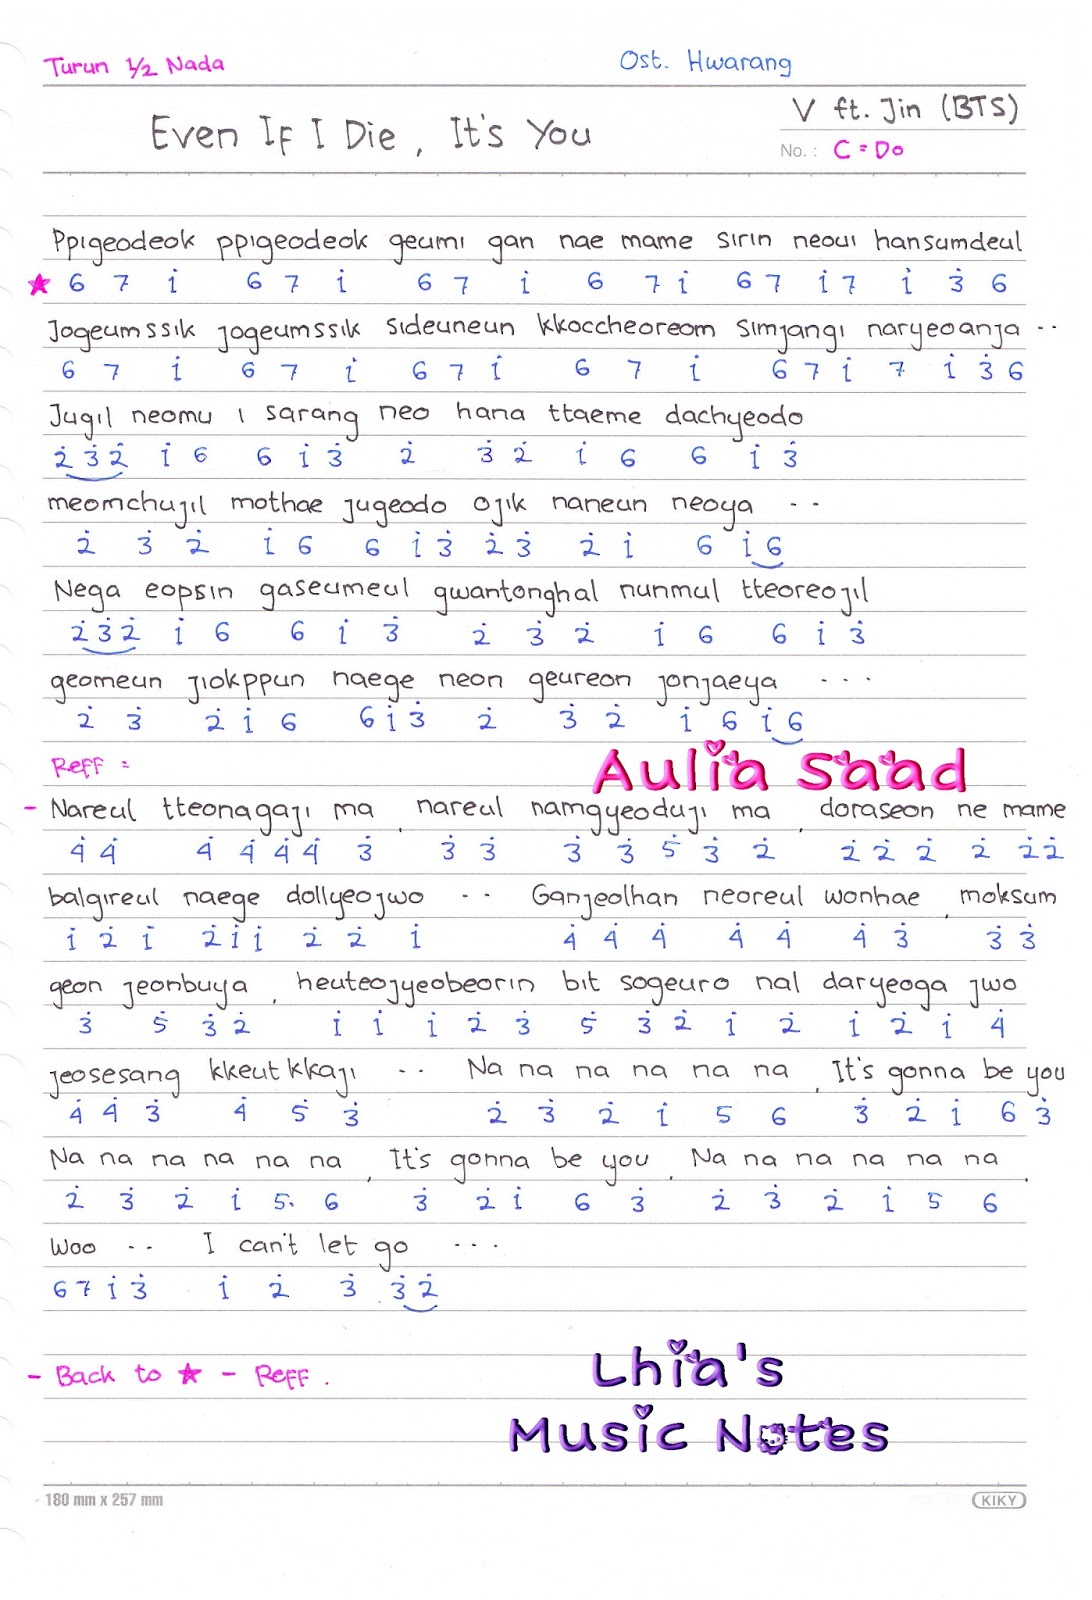 Turun 1/2 Nada
Ost. Hwarang
Even If I Die, It's You
V ft. Jin (BTS)
No. : C = Do
Ppigeodeok ppigeodeok geumi gan nae mame sirin neoui hansumdeul
★ 6 7 i̇ 6 7 i̇ 6 7 i̇ 6 7 i̇ 6 7 i̇ 7 i̇ 3̇ 6
Jogeumssik jogeumssik sideuneun kkoccheoreom simjangi naryeoanja ..
6 7 i̇ 6 7 i̇ 6 7 i̇ 6 7 i̇ 6 7 i̇ 7 i̇ 3̇ 6
Jugil neomu i sarang neo hana ttaeme dachyeodo
2̇ 3̇ 2̇ i̇ 6 6 i̇ 3̇ 2̇ 3̇ 2̇ i̇ 6 6 i̇ 3̇
meomchujil mothae jugeodo ojik naneun neoya ..
2̇ 3̇ 2̇ i̇ 6 6 i̇ 3̇ 2̇ 3̇ 2̇ i̇ 6 i̇ 6
Nega eopsin gaseumeul gwantonghal nunmul tteoreojil
2̇ 3̇ 2̇ i̇ 6 6 i̇ 3̇ 2̇ 3̇ 2̇ i̇ 6 6 i̇ 3̇
geomeun jiokppun naege neon geureon jonjaeya ...
2̇ 3̇ 2̇ i̇ 6 6 i̇ 3̇ 2̇ 3̇ 2̇ i̇ 6 i̇ 6
Reff :
Aulia Saad
- Nareul tteonagaji ma, nareul namgyeoduji ma, doraseon ne mame
4̇ 4̇ 4̇ 4̇ 4̇ 4̇ 3̇ 3̇ 3̇ 3̇ 3̇ 5̇ 3̇ 2̇ 2̇ 2̇ 2̇ 2̇ 2̇ 2̇
balgireul naege dollyeojwo .. Ganjeolhan neoreul wonhae, moksum
i̇ 2̇ i̇ 2̇ i̇ i̇ 2̇ 2̇ i̇ 4̇ 4̇ 4̇ 4̇ 4̇ 4̇ 3̇ 3̇ 3̇
geon jeonbuya, heuteojyeobeorin bit sogeuro nal daryeoga jwo
3̇ 5̇ 3̇ 2̇ i̇ i̇ i̇ 2̇ 3̇ 5̇ 3̇ 2̇ i̇ 2̇ i̇ 2̇ i̇ 4̇
jeosesang kkeut kkaji .. Na na na na na na, It's gonna be you
4̇ 4̇ 3̇ 4̇ 5̇ 3̇ 2̇ 3̇ 2̇ i̇ 5 6 3̇ 2̇ i̇ 6 3̇
Na na na na na na, It's gonna be you, Na na na na na na,
2̇ 3̇ 2̇ i̇ 5. 6 3̇ 2̇ i̇ 6 3̇ 2̇ 3̇ 2̇ i̇ 5 6
Woo .. I can't let go ...
6 7 i̇ 3̇ i̇ 2̇ 3̇ 3̇ 2̇
- Back to ★ - Reff.
Lhia's
Music Notes
180 mm x 257 mm
KIKY